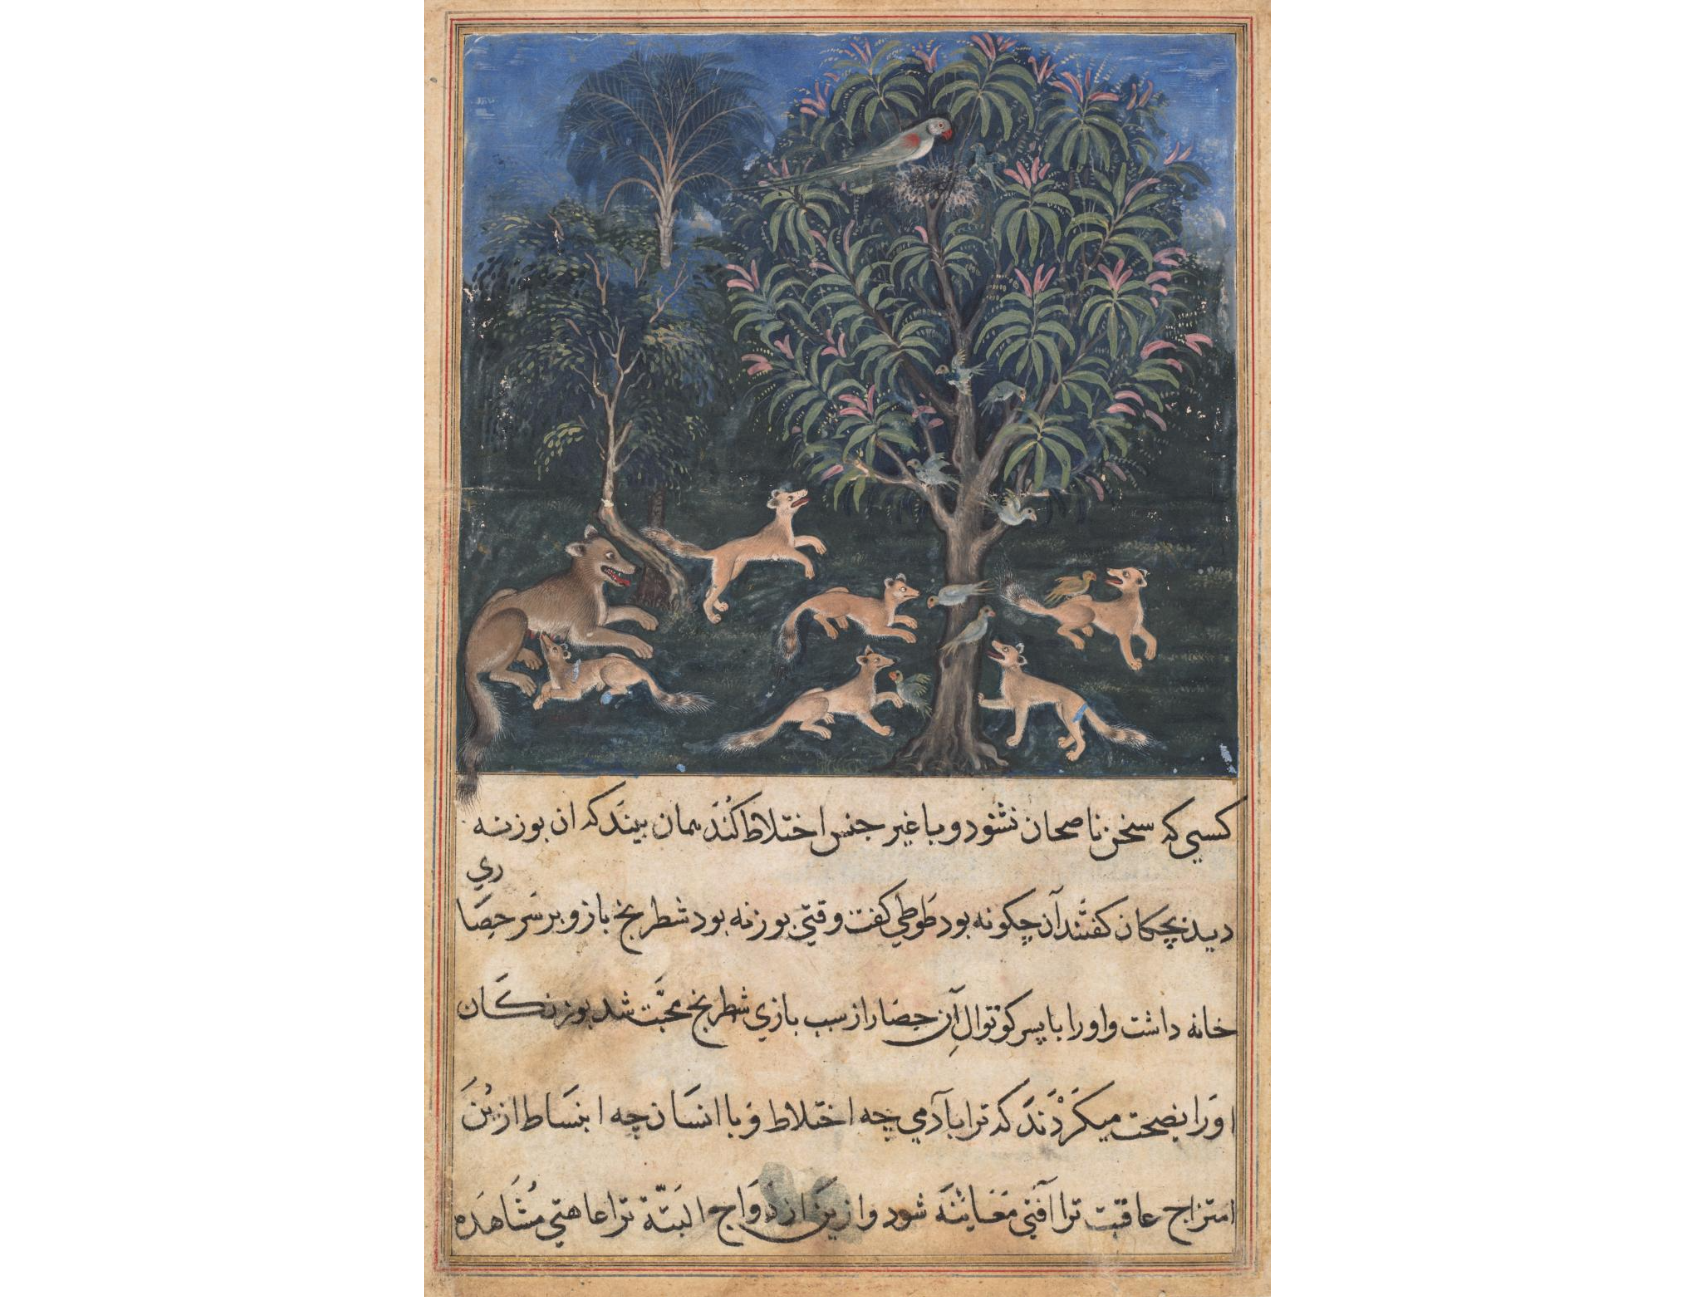 کسی که سخن ناصحان نشنود و با غیر جنس اختلاط کند همان بیند که ان بوزنه
دید بچکان کفتند آن چکونه بود طوطی کفت وقتی بوزنه بود شطرنج باز و بر سر حصاری
خانه داشت و او را با پسر کوتوال آن حصار از سبب بازی شطرنج محبّت شد بوزنکان
او را نصیحت میکردند که ترا با آدمی چه اختلاط و با انسان چه انبساط ازین
امتزاج عاقبت ترا آفتی معاینه شود و ازین ازدواج البتّه ترا عاهتی مشاهده